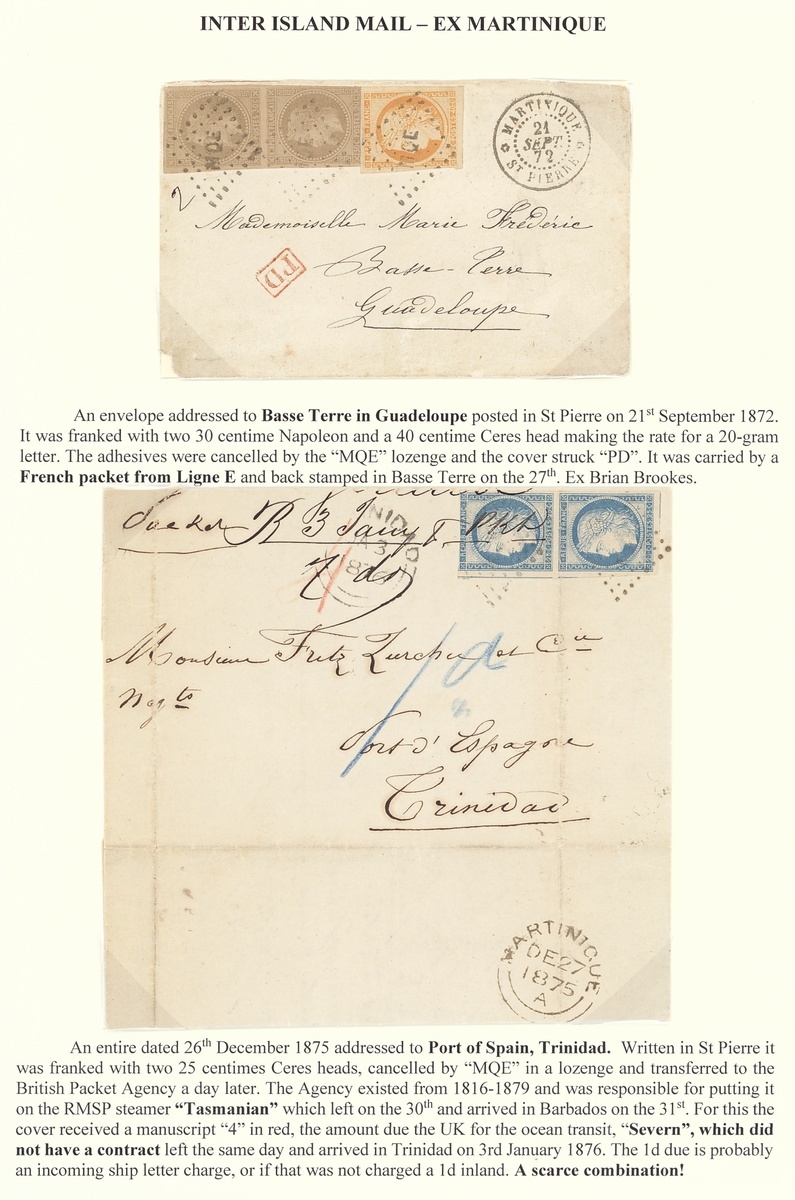 INTER ISLAND MAIL – EX MARTINIQUE
MQE
QE
MARTINIQUE
21
SEPT
72
ST PIERRE
2
Mademoiselle Marie Frédéric
PD
Basse-Terre
Guadeloupe
An envelope addressed to Basse Terre in Guadeloupe posted in St Pierre on 21st September 1872.
It was franked with two 30 centime Napoleon and a 40 centime Ceres head making the rate for a 20-gram
letter. The adhesives were cancelled by the “MQE” lozenge and the cover struck “PD”. It was carried by a
French packet from Ligne E and back stamped in Basse Terre on the 27th. Ex Brian Brookes.
1876
Monsieur Fritz Zurcher et Cie
Negts
1d
Port d'Espagne
Trinidad
MARTINIQUE
DE27
1875
A
An entire dated 26th December 1875 addressed to Port of Spain, Trinidad. Written in St Pierre it
was franked with two 25 centimes Ceres heads, cancelled by “MQE” in a lozenge and transferred to the
British Packet Agency a day later. The Agency existed from 1816-1879 and was responsible for putting it
on the RMSP steamer “Tasmanian” which left on the 30th and arrived in Barbados on the 31st. For this the
cover received a manuscript “4” in red, the amount due the UK for the ocean transit, “Severn”, which did
not have a contract left the same day and arrived in Trinidad on 3rd January 1876. The 1d due is probably
an incoming ship letter charge, or if that was not charged a 1d inland. A scarce combination!